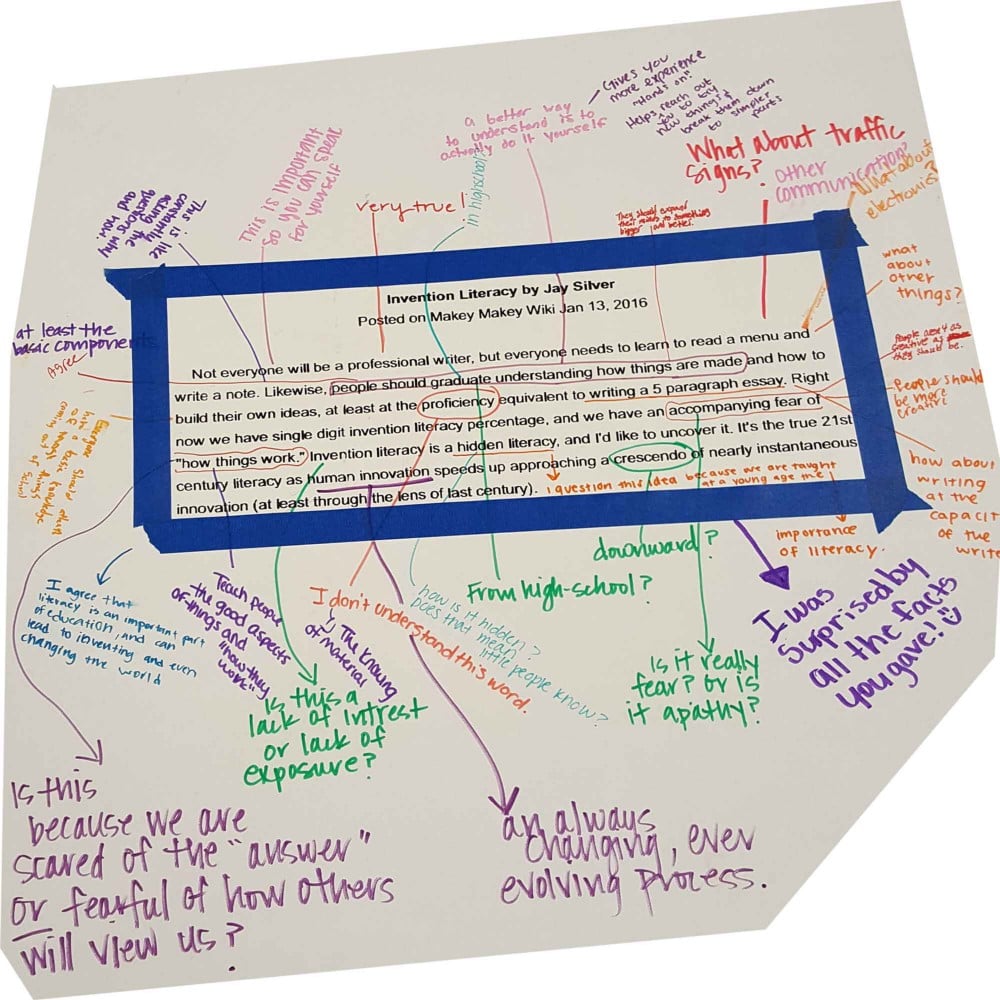 Gives you
more experience
"Hands on."
Helps reach out
you to try
new things &
break them down
to simpler
parts
a better way
to understand is to
actually do it yourself
What about traffic
signs?
other
communication?
What about
electronics?
This is important
so you can speak
for yourself
very true!
in highschool?
This is like
constantly
asking the
questions why
and how.
They should expand
their minds to something
bigger and better.
what
about
other
things?
at least the
basic components
agree
People aren't as
creative as
they should be.
People should
be more
creative
Invention Literacy by Jay Silver
Posted on Makey Makey Wiki Jan 13, 2016
Not everyone will be a professional writer, but everyone needs to learn to read a menu and
write a note. Likewise, people should graduate understanding how things are made and how to
build their own ideas, at least at the proficiency equivalent to writing a 5 paragraph essay. Right
now we have single digit invention literacy percentage, and we have an accompanying fear of
"how things work." Invention literacy is a hidden literacy, and I'd like to uncover it. It's the true 21st
century literacy as human innovation speeds up approaching a crescendo of nearly instantaneous
innovation (at least through the lens of last century).
I question this idea because we are taught
at a young age the
importance
of literacy.
how about
writing
at the
capacit
of the
write
Everyone should
have a basic knowledge
coming out of
school
I agree that
literacy is an important part
of education, and can
lead to inventing and even
changing the world
Teach people
the good aspects
of things and
"how they
work"
The knowing
of material
I don't understand this word.
how is it hidden?
Does that mean
little people know?
From high-school?
downward?
Is this a
lack of intrest
or lack of
exposure?
Is it really
fear? or is
it apathy?
I was
surprised by
all the facts
you gave!
Is this
because we are
scared of the "answer"
or fearful of how others
will view us?
an always
changing, ever
evolving process.